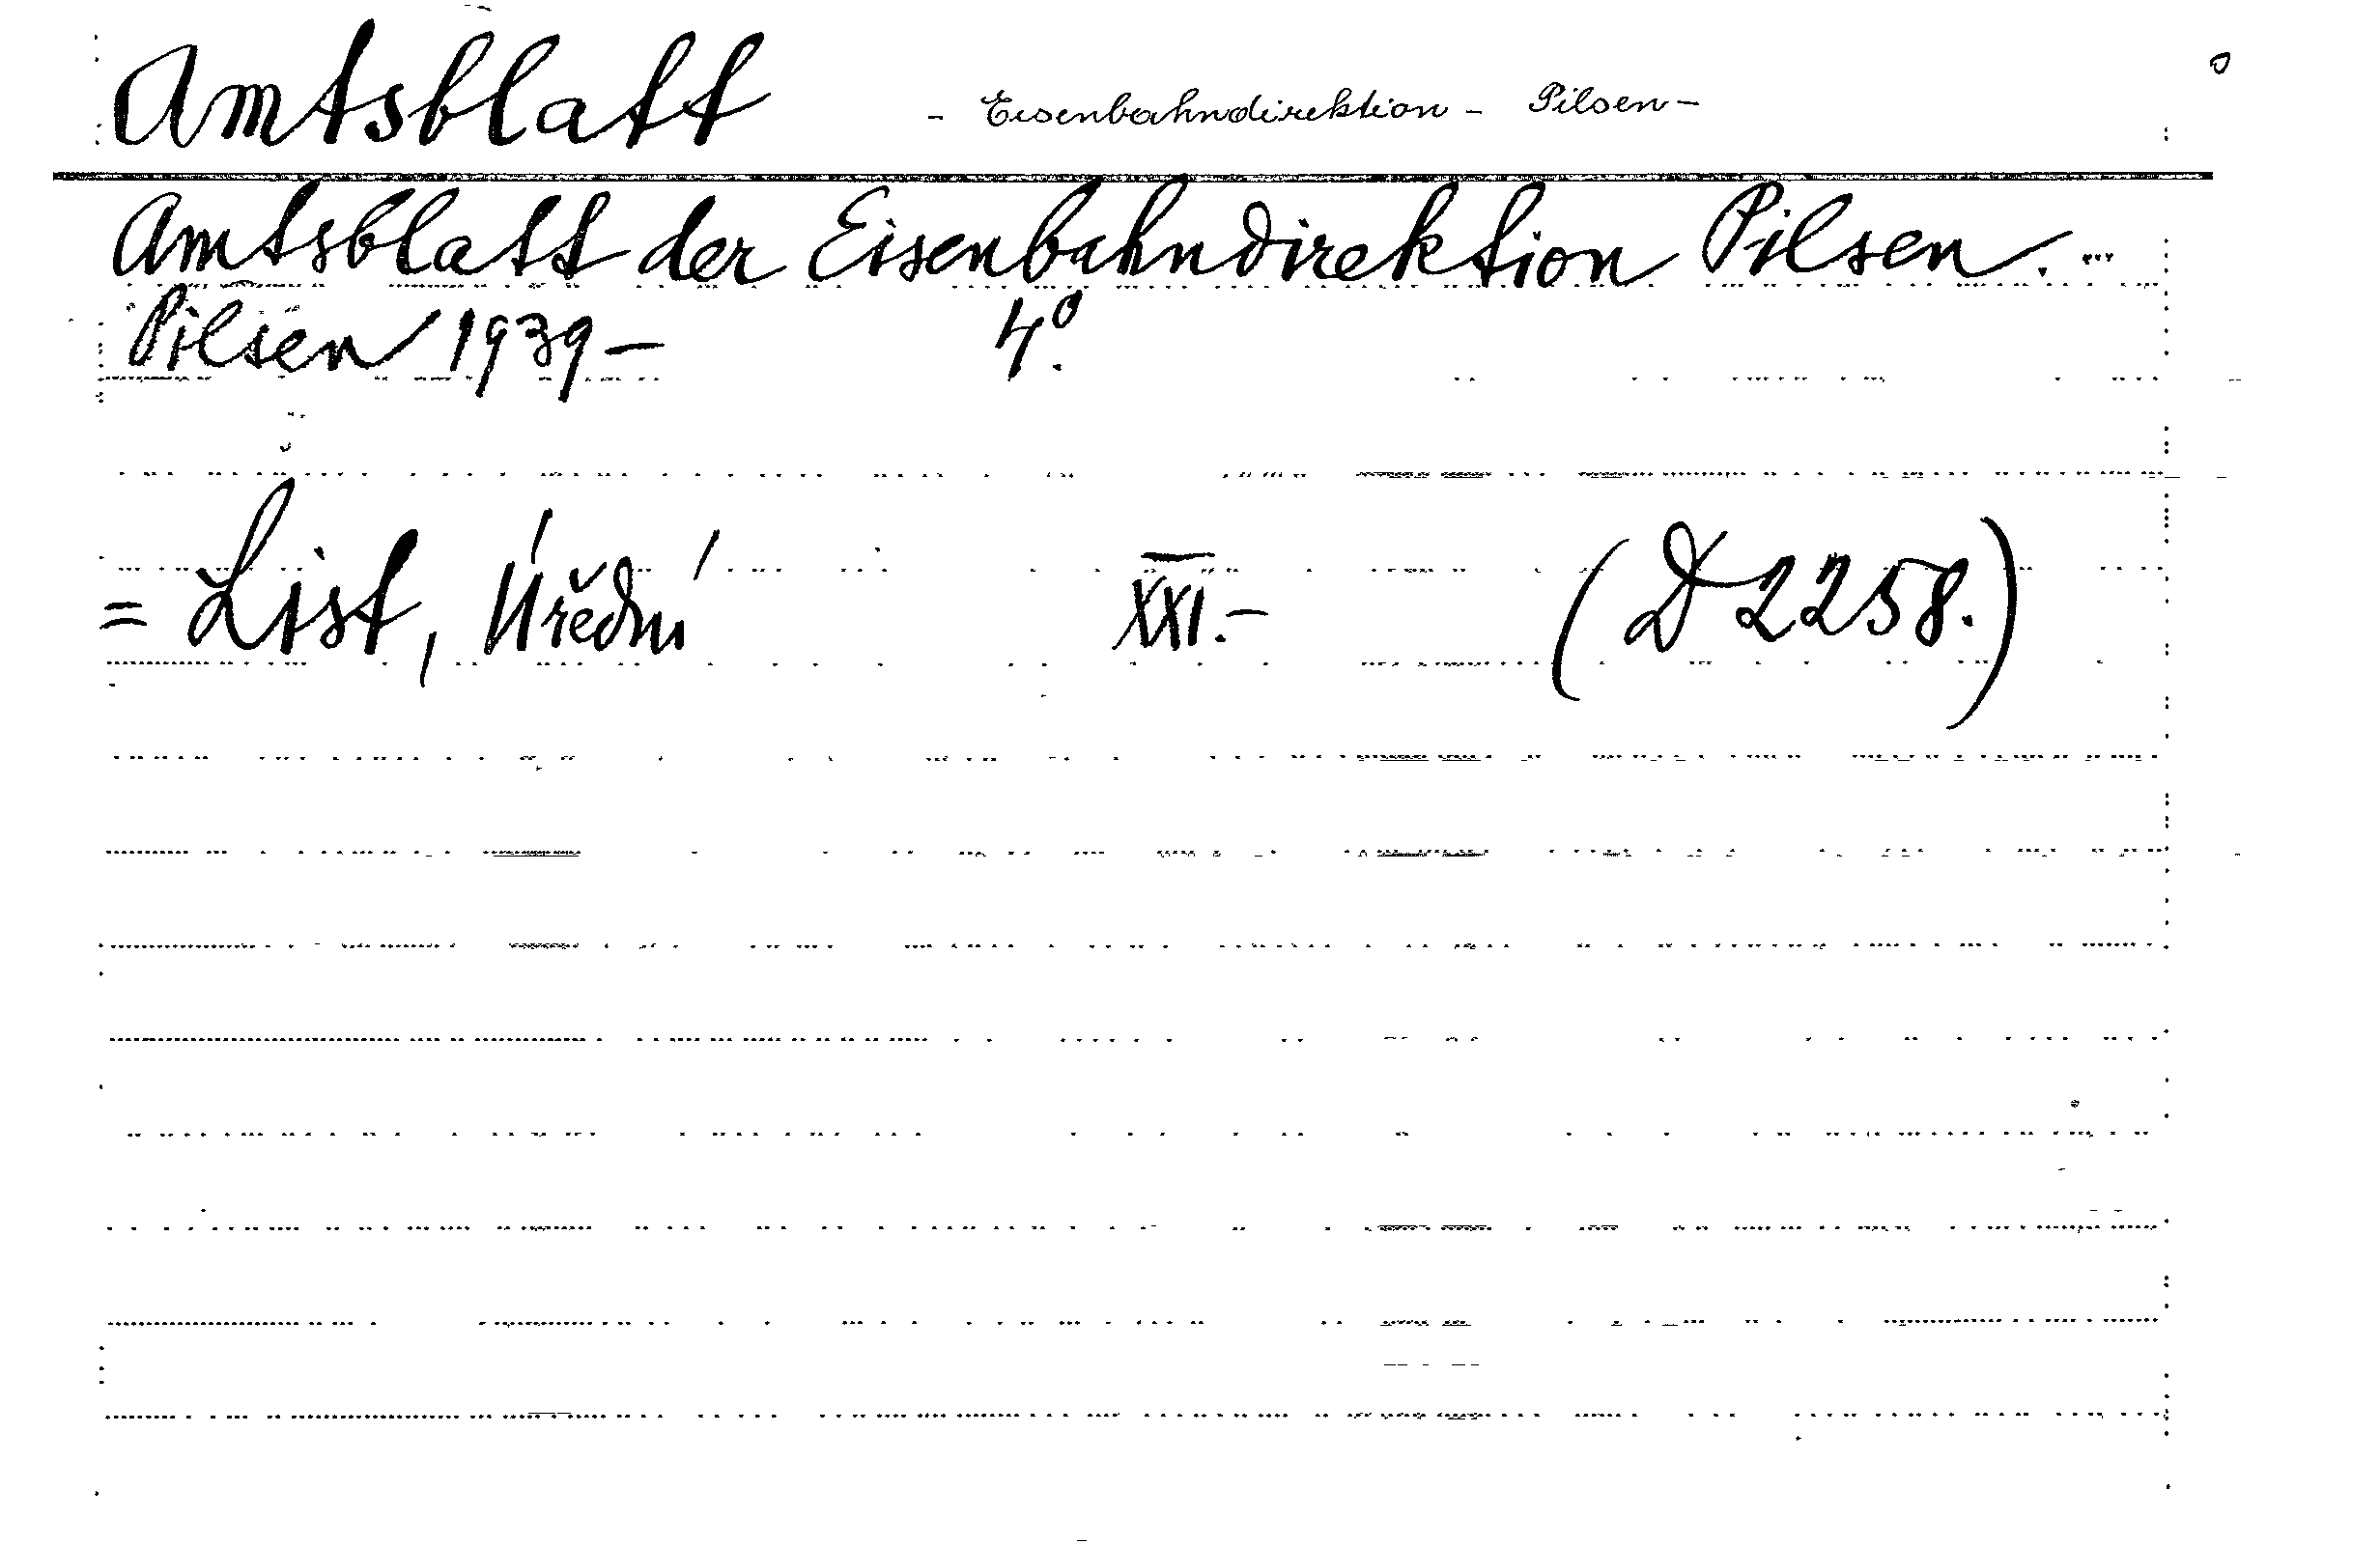 Amtsblatt - Eisenbahndirektion - Pilsen -
Amtsblatt der Eisenbahndirektion Pilsen. -
Pilsen 1939 - 4º.
= List, Úřední XXI. - (D 2258.)